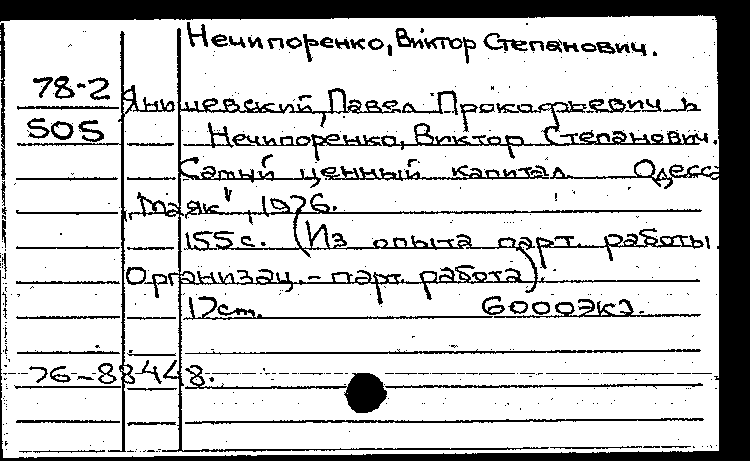 Нечипоренко, Виктор Степанович.
78-2 Янишевский, Павел Прокофьевич и
505 Нечипоренко, Виктор Степанович.
Самый ценный капитал. Одесса
„Маяк", 1976.
155с. (Из опыта парт. работы.
Организац.-парт. работа).
17cm. 6000экз.
76-88448.